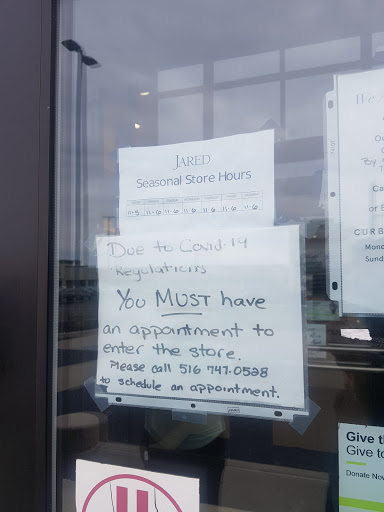 JARED
Seasonal Store Hours
11-5 11-6 11-6 11-6 11-6 11-6 11-6
Due to Covid-19
Regulations
You MUST have
an appointment to
enter the store.
Please call 516 747-0528
to schedule an appointment.
We
Ca
or E
CURB
Mond
Sund
Give t
Give to
Donate Now